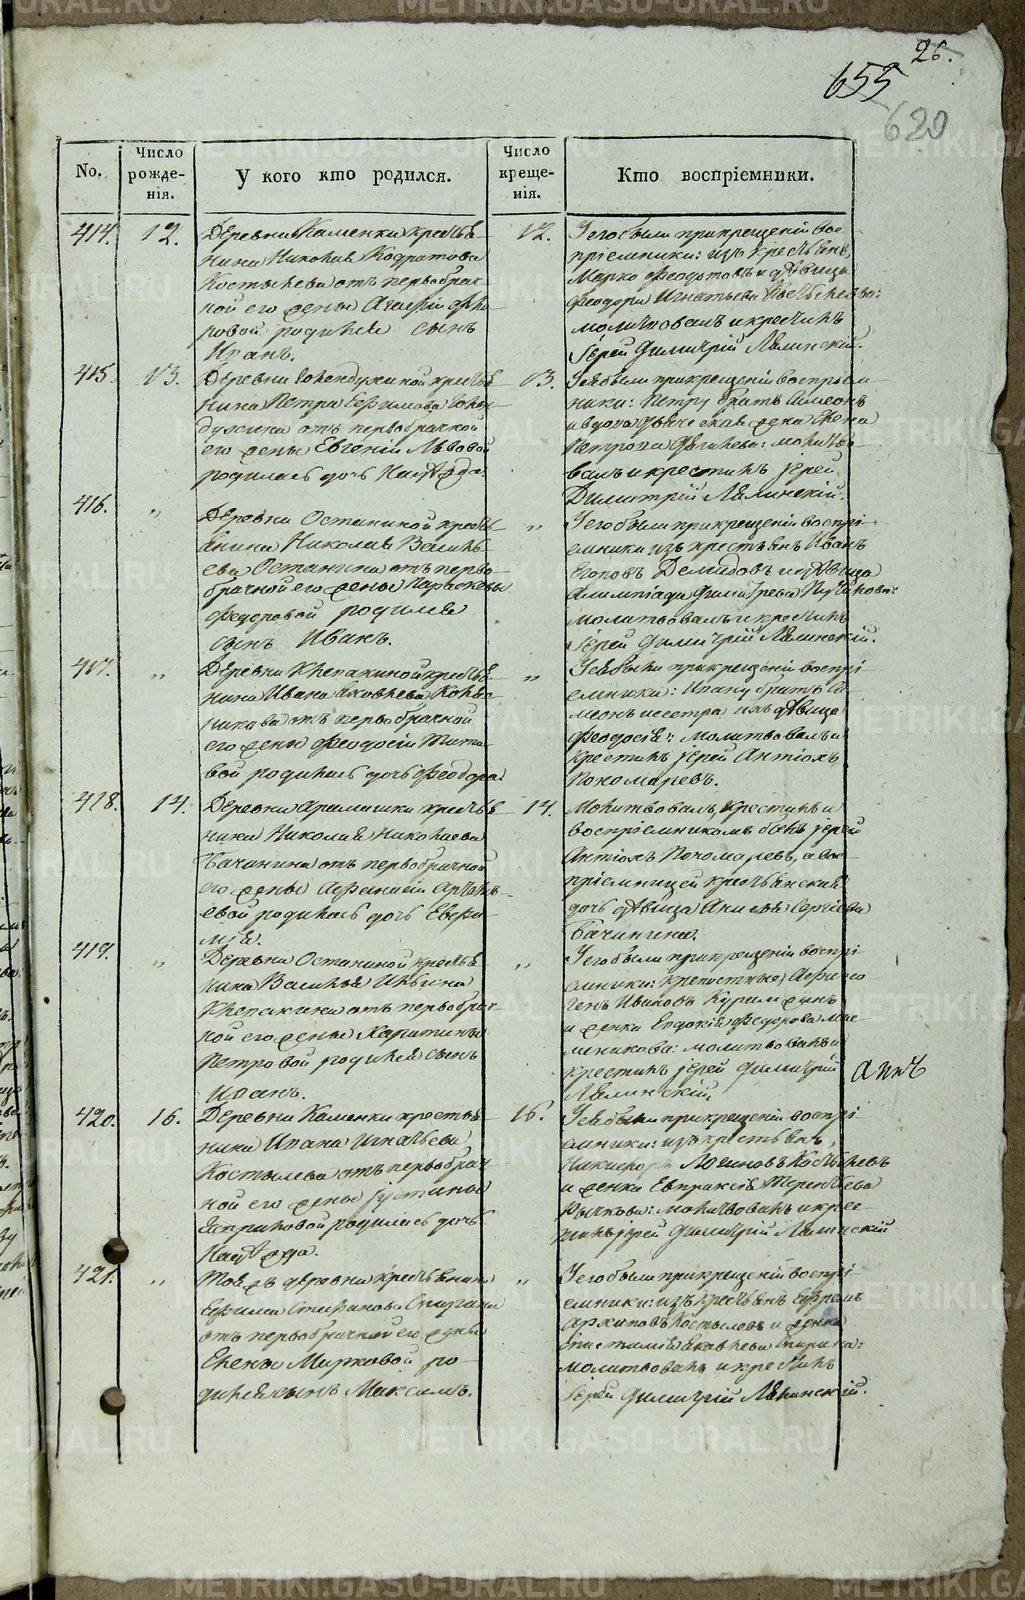 26.
655
620
No.
Число рожде-нія.
У кого кто родился.
Число креще-нія.
Кто воспріемники.
414.
12.
Деревни Каменки кресть-
нина
Костылева отъ первобрач-
ной его жены
ровой родился сынъ
Иванъ.
12.
У него были при крещеніи вос-
пріемники: изъ крестьянъ
Марко и дѣвица
Феодора Игнатьева
молитвовалъ и крестилъ
Іерей Димитрій Ляпинскій.
415.
13.
Деревни кресть-
нина Петра Ефимова
отъ первобрачной
его жены Евгеніи Львовой
родилась дочь Надежда.
13.
У нея были при крещеніи воспріем-
ники: Петру братъ Симеонъ
и жена Елена
Петрова молитво-
валъ и крестилъ іерей
Димитрій Ляпинскій.
416.
"
Деревни Останиной кресть-
янина Николая Василь-
ева Останина отъ перво-
брачной его жены Параскевы
Федоровой родился
сынъ Иванъ.
"
У него были при крещеніи воспрі-
емники изъ крестьянъ Иванъ
Егоровъ Демидовъ и дѣвица
Олимпіада Димитріева
молитвовалъ и крестилъ
Іерей Димитрій Ляпинскій.
417.
"
Деревни Клепакиной кресть-
нина Ивана Яковлева
отъ первобрачной
его жены Феодосіи Тито-
вой родилась дочь Феодора.
"
У нея были при крещеніи воспрі-
емники: Ивану братъ Си-
меонъ и сестра ихъ дѣвица
Феодосія: молитвовалъ и
крестилъ іерей Антіохъ
Пономаревъ.
418.
14.
Деревни кресть-
нина Николая Николаева
Бачинина отъ первобрачной
его жены
евой родилась дочь Евфи-
мія.
14.
Молитвовалъ, крестилъ и
воспріемникомъ былъ іерей
Антіохъ Пономаревъ, а вос-
пріемницей крестьянская
дочь дѣвица Анисья Сергіева
Бачинина.
419.
"
Деревни Останиной кресть-
нина Василья Ильина
Клепакина отъ первобрач-
ной его жены Харитины
Петровой родился сынъ
Иванъ.
"
У него были при крещеніи воспрі-
емники:
Ивановъ
и женка Евдокія Федорова Мас-
леникова: молитвовалъ и
крестилъ іерей Димитрій
Ляпинскій.
420.
16.
Деревни Каменки кресть-
нина Ивана Игнатьева
Костылева отъ первобрач-
ной его жены Іустины
родилась дочь
Надежда.
16.
У нея были при крещеніи воспрі-
емники: изъ крестьянъ,
Никифоръ Логиновъ Костылевъ
и женка Евпраксія Терентьева
Рычкова: молитвовалъ и крес-
тилъ іерей Димитрій Ляпинскій
421.
"
Той жъ деревни крестьянина
Ефима Стефанова Спирина
отъ первобрачной его жены
Елены Марковой ро-
дился сынъ Максимъ.
"
У него были при крещеніи воспрі-
емники: изъ крестьянъ Ефремъ
Архиповъ Костылевъ и женка
Яковлева Спирина:
молитвовалъ и крестилъ
Іерей Димитрій Ляпинскій.
METRIKI.GASO-URAL.RU